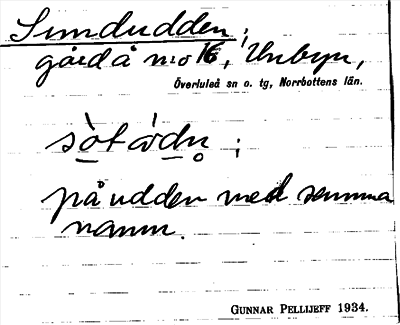 Sundudden;
gård å no 16, Unbyn,
Överluleå sn o. tg, Norrbottens län.
på udden med samma
namn.
GUNNAR PELLIJEFF 1934.